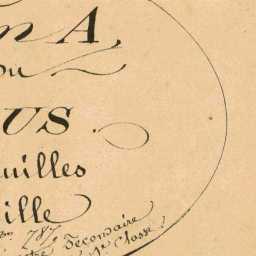 n A,
ou
US
uilles
ille
787
Secondaire
Classe